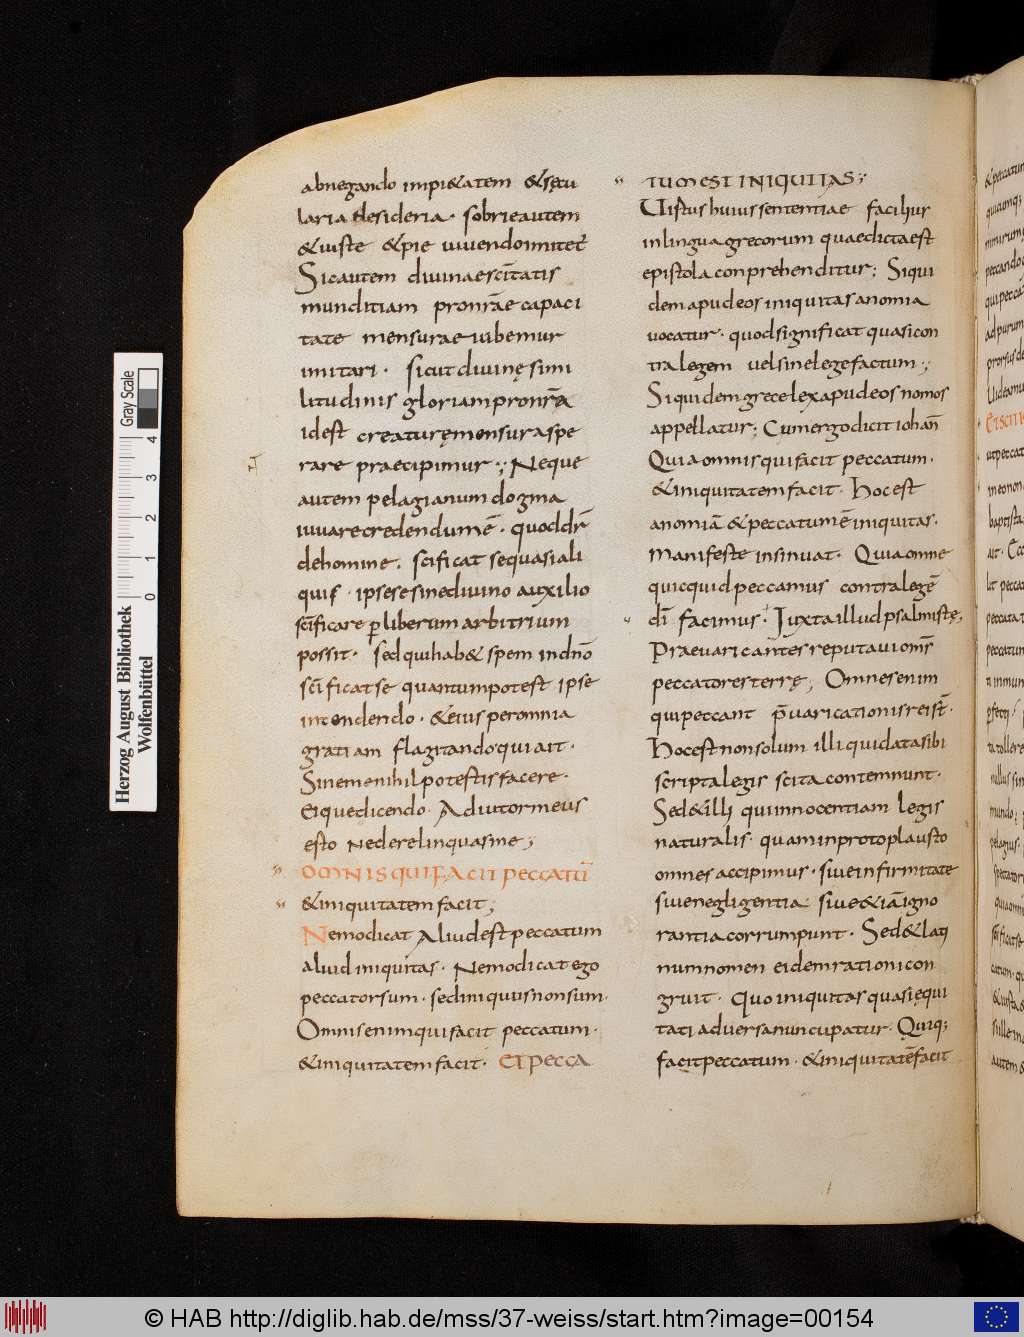 abnegando impi&atem &sęcu
laria desideria· sobrie autem
&iuste &pie uiuendo imitet̄
Sicautem diuinae sc̄itatis
munditiam pronr̄ae capaci
tate mensurae iubemur
imitari· sicut diuinę simi
litudinis gloriam pronr̄a
idest creaturę mensura spe
rare praecipimur·; Neque
autem pelagianum dogma
iuuare credendum ē· quoddr̄
dehomine. scificat se quasi ali
quis· ipse se sine diuino auxilio
sc̄ificare p̱ liberum arbitrium
possit· sed qui hab& spem in dn̄o
sc̄ificat se quantum potest ipse
intendendo· &eius peromnia
gratiam flagitando qui ait·
Sinemenihil potestis facere·
Eique dicendo· Adiutor meus
esto nederelinquasme;
OMNIS QUI FACIT PECCATŪ
&iniquitatem facit;
Nemo dicat Aliud est peccatum
aliud iniquitas· Nemo dicat ego
peccator sum· sed iniquus non sum·
Omnis enim qui facit peccatum·
&iniquitatem facit· ET PECCA
TUM EST INIQUITAS;
Uistus huius sententiae facilius
in lingua grecorum quae dicta est
epistola conprehenditur; Siqui
dem apud eos iniquitas anomia
uocatur· quod significat quasi con
tra legem uel sine lege factum·;
Siquidem grece lex apud eos nomos
appellatur; Cum ergo dicit iohan̄
Quia omnis qui facit peccatum·
&iniquitatem facit· hoc est
anomiā &peccatum ē iniquitas·
manifeste insinuat· Quia omne
quicquid peccamus contra legē
dī facimus· Iuxta illud psalmistę;
Praeuaricantes reputaui oms̄
peccatores terrę; Omnes enim
qui peccant p̄uaricationis rei st̄·
hoc est non solum illi qui datas ibi
scripta legis scita contemnunt·
Sed &illi qui innocentiam legis
naturalis· quam in protoplausto
omnes accipimus· siue infirmitate
siue negligentia siue &iā igno
rantia corrumpunt· Sed &lati
num nomen eidem rationi con
gruit· Quo iniquitas quasi ęqui
tati aduersa nuncupatur· Quiq;
facit peccatum· &iniquitatē facit
Herzog August Bibliothek
Wolfenbüttel
0 1 2 3 4
Gray Scale
© HAB http://diglib.hab.de/mss/37-weiss/start.htm?image=00154